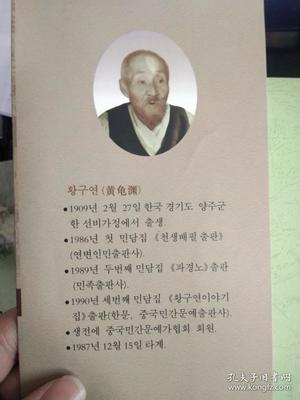 황구연 (黄龟渊)
•1909년 2월 27일 한국 경기도 양주군
한 선비가정에서 출생.
•1986년 첫 민담집 《천생배필 출판》
(연변인민출판사).
•1989년 두번째 민담집 《파경노》 출판
(민족출판사).
•1990년 세번째 민담집 《황구연이야기
집》 출판(한문, 중국민간문예출판사).
•생전에 중국민간문예가협회 회원.
•1987년 12월 15일 타계.
孔夫子旧书网